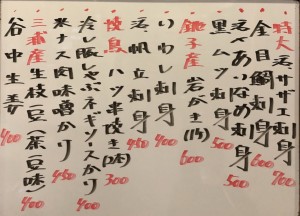 特大 活サザエ刺身 700
金目鯛刺身 600
活〆あいなめ刺身 500
黒ムツ刺身 500
銚子産 岩がき(1ケ) 600
いわし刺身 450
活帆立刺身 450
焼鳥 ハツ串焼き(2本) 300
冷し豚しゃぶネギソースかけ 400
水ナス肉味噌かけ 450
三浦産 生枝豆(茶豆味) 400
谷中生姜 400